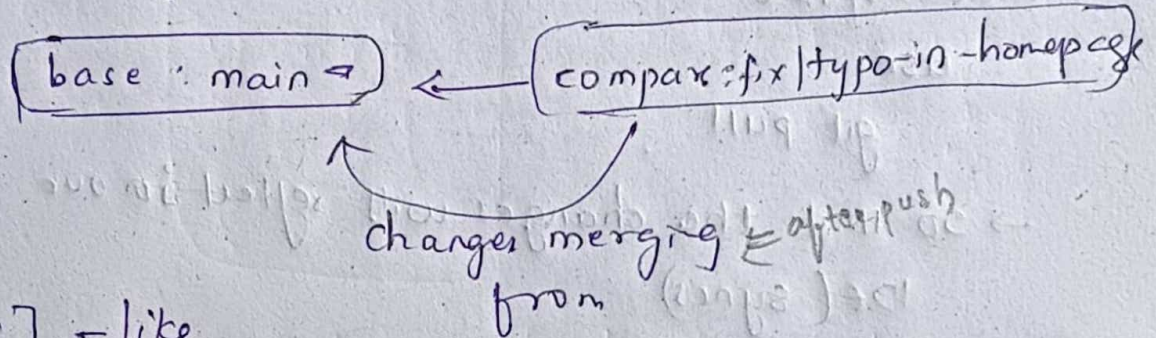 base : main ← compare : fix/typo-in-homepage
changes merging ← after push
from
- like